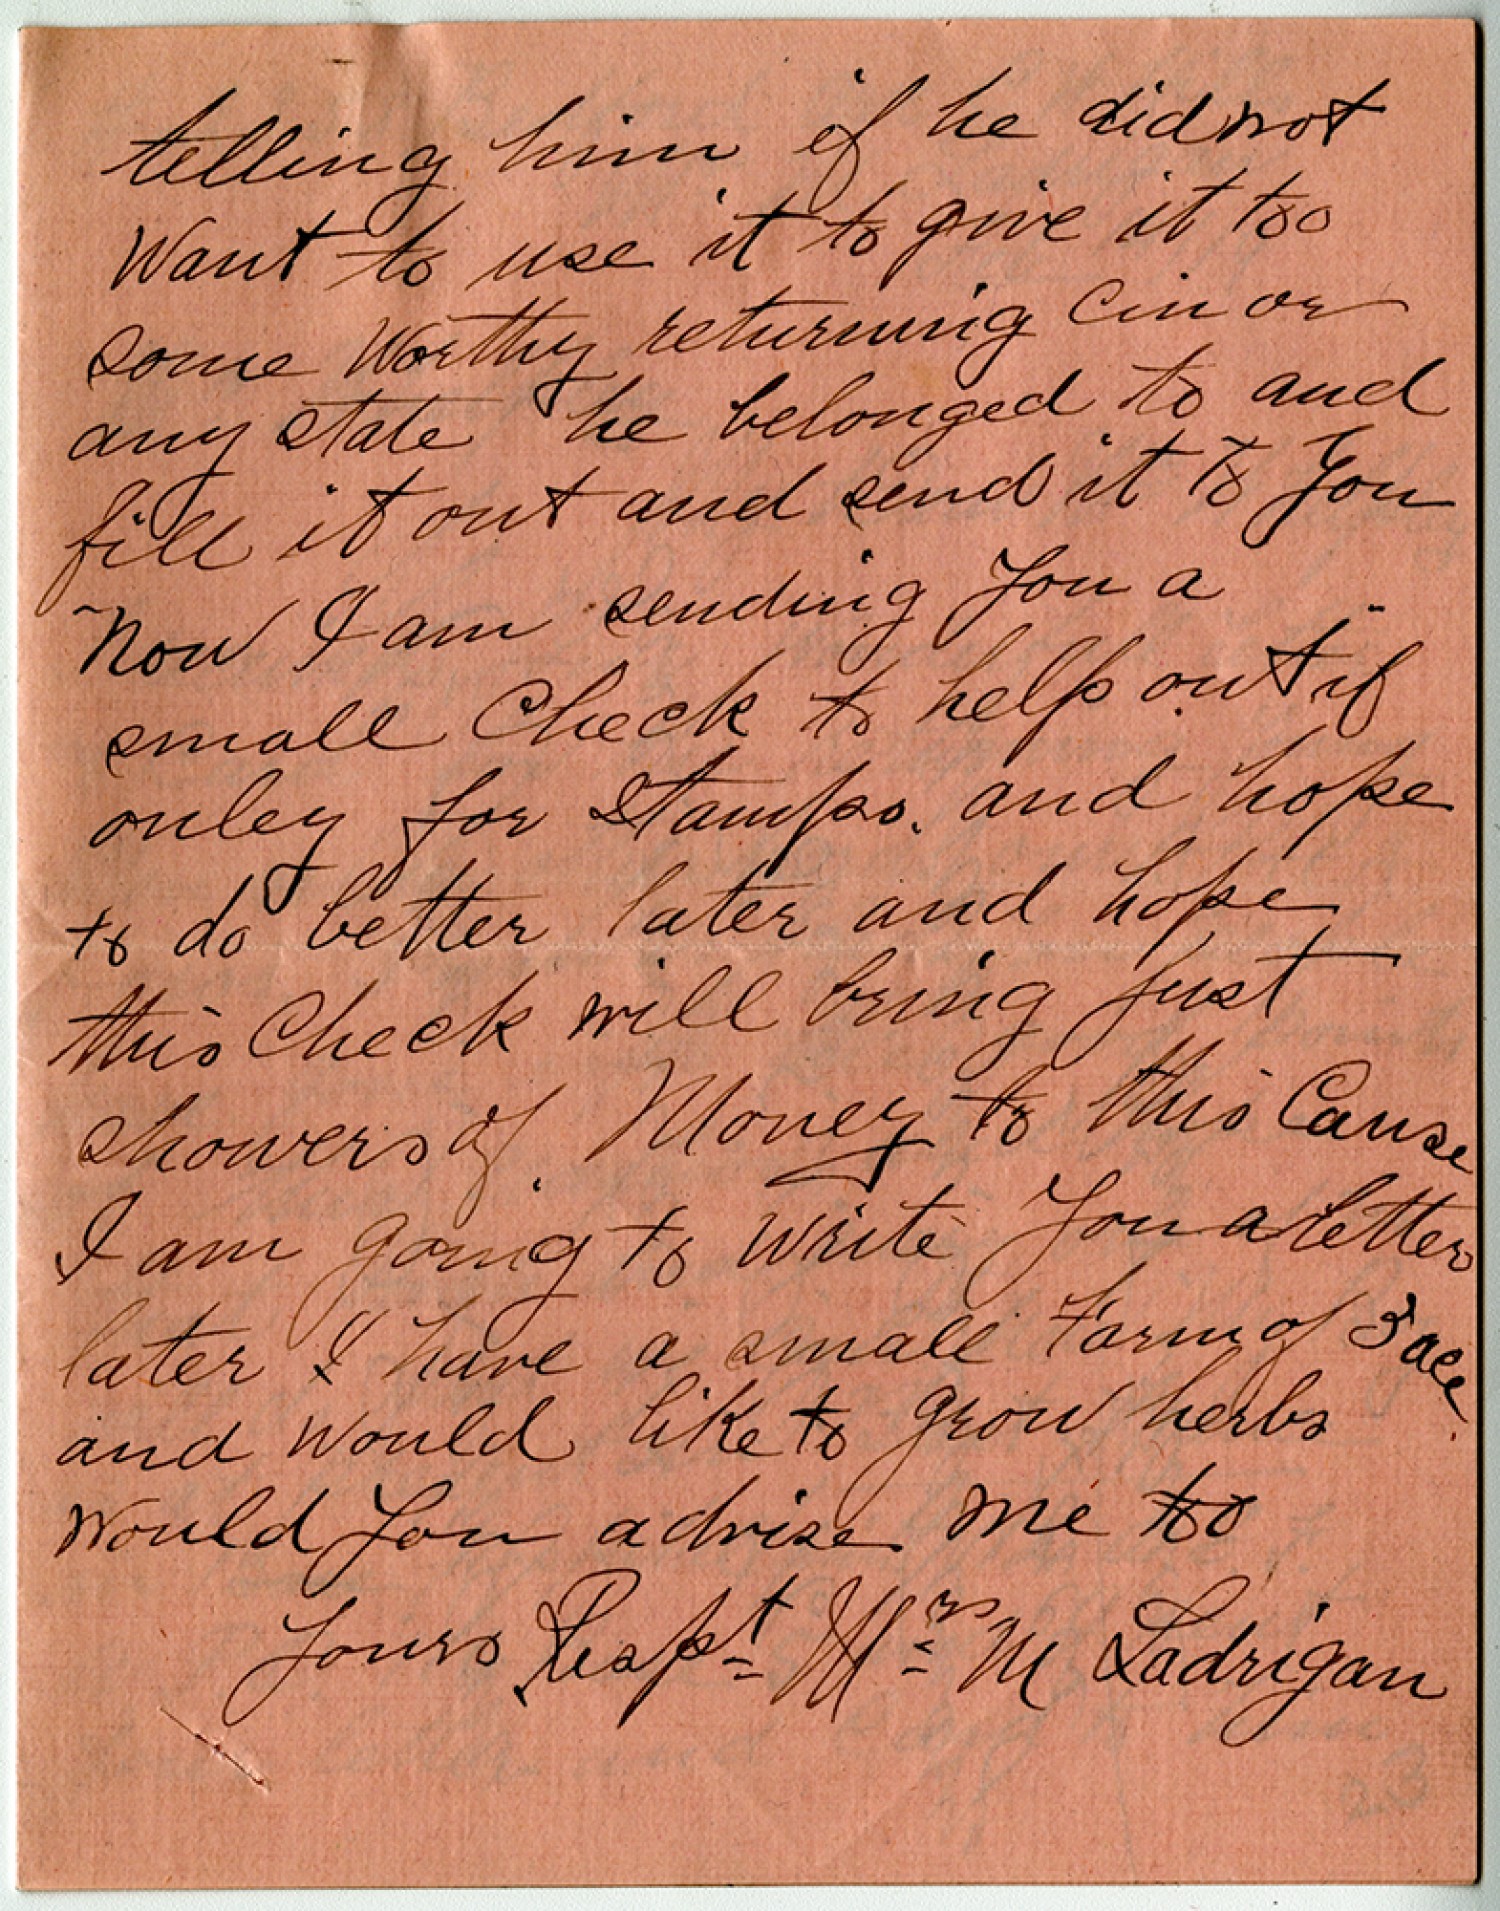 telling him if he did not
Want to use it to give it too
some Worthy returning Cin or
any state he belonged to and
fill it out and send it to You
Now I am sending You a
small Check to help out if
onley for Stamps. and hope
to do better later and hope
this Check will bring just
showers of Money to this Cause
I am going to write You a letter
later I have a small Farm of 5 ace
and would like to grow herbs
Would You advise me too
Yours Respt Mrs M Ladrigan
23